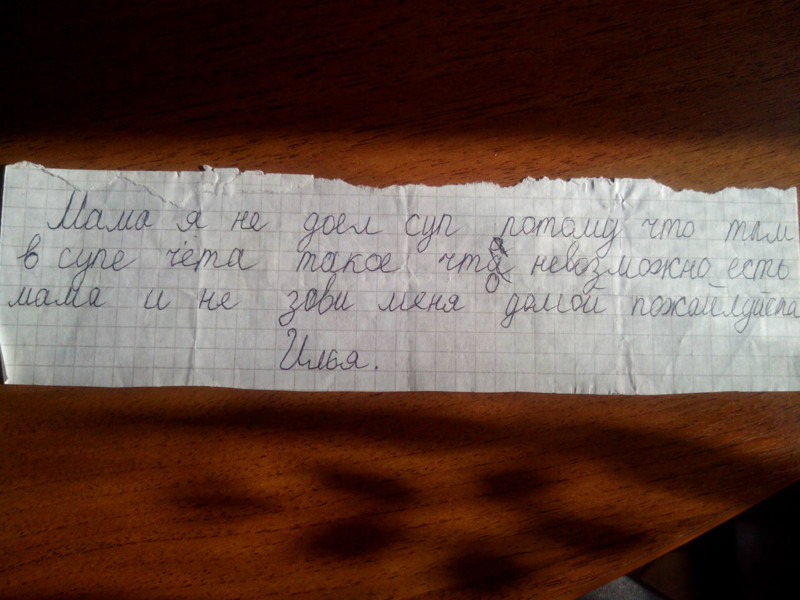 Мама я не доел суп потому что там
в супе чёта такое что невозможно есть
мама и не зови меня домой пожайлуйста
Илья.